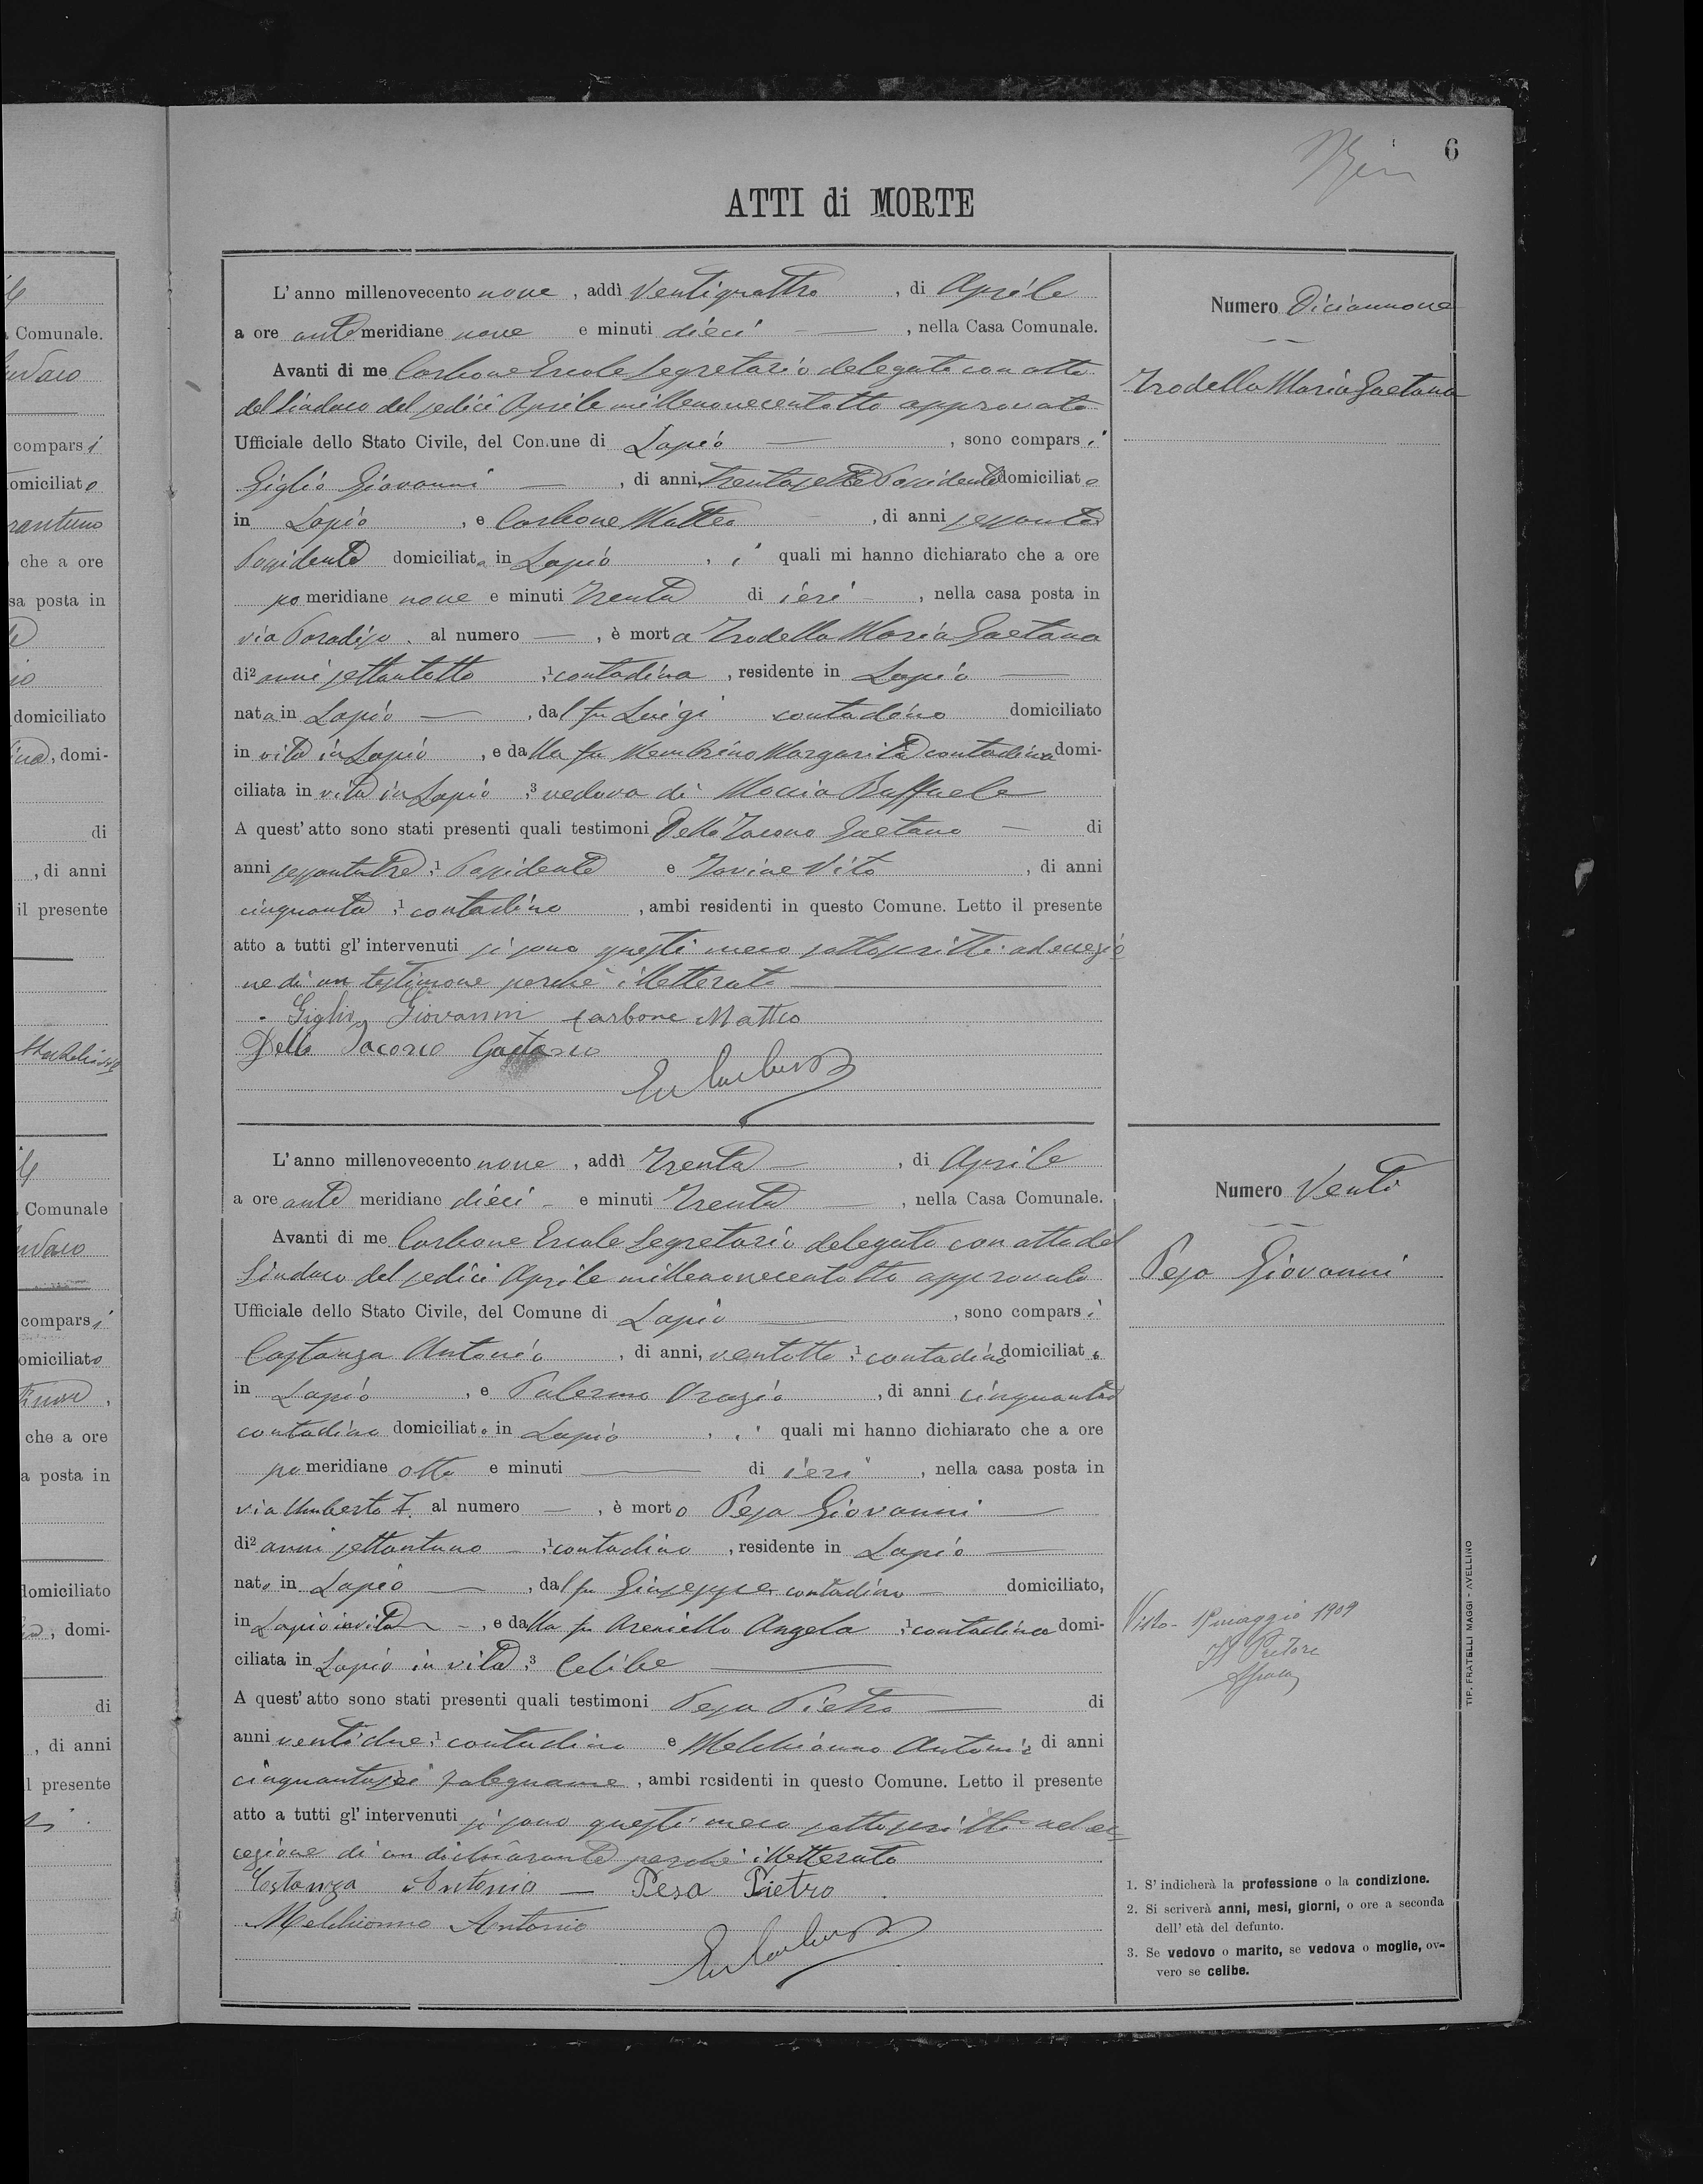 6
ATTI di MORTE
L' anno millenovecento nove, addì Ventiquattro, di Aprile
a ore ante meridiane nove e minuti dieci, nella Casa Comunale.
Avanti di me Carbone Ercole Segretario delegato con atto
del Sindaco del sedici Aprile millenovecentotto approvato
Ufficiale dello Stato Civile, del Comune di Lapio, sono comparsi
Giglio Giovanni, di anni trentasette Possidente domiciliato
in Lapio, e Carbone Matteo, di anni sessanta
Possidente domiciliato in Lapio, i quali mi hanno dichiarato che a ore
po meridiane nove e minuti Trenta di ieri, nella casa posta in
via Paradiso al numero —, è morta Trodella Maria Gaetana
di2 anni settantotto, 1 contadina, residente in Lapio
nata in Lapio, dal fu Luigi contadino domiciliato
in vita in Lapio, e dalla fu Membrino Margarita contadina domi-
ciliata in vita in Lapio, 3 vedova di Moccia Raffaele
A quest' atto sono stati presenti quali testimoni Dello Iacono Gaetano di
anni sessantatre, 1 Possidente e Iovine Vito, di anni
cinquanta, 1 contadino, ambi residenti in questo Comune. Letto il presente
atto a tutti gl' intervenuti si sono questi meco sottoscritti ad eccezio
ne di un testimone perchè illetterato
Giglio Giovanni Carbone Matteo
Dello Iacono Gaetano
Numero Diciannove
Trodella Maria Gaetana
L' anno millenovecento nove, addì Trenta, di Aprile
a ore ante meridiane dieci e minuti Trenta, nella Casa Comunale.
Avanti di me Carbone Ercole Segretario delegato con atto del
Sindaco del sedici Aprile millenovecentotto approvato
Ufficiale dello Stato Civile, del Comune di Lapio, sono comparsi
Costanza Antonio, di anni, ventotto, 1 contadino domiciliato
in Lapio, e Palermo Orazio, di anni cinquanta
contadino domiciliato in Lapio, i quali mi hanno dichiarato che a ore
po meridiane otto e minuti — di ieri, nella casa posta in
via Umberto I. al numero —, è morto Pesa Giovanni
di2 anni settantuno, 1 contadino, residente in Lapio
nato in Lapio, dal fu Giuseppe contadino domiciliato,
in Lapio in vita, e dalla fu Areniello Angela, 1 contadina domi-
ciliata in Lapio in vita, 3 Celibe
A quest' atto sono stati presenti quali testimoni Pesa Pietro di
anni ventidue, 1 contadino e Melchionno Antonio di anni
cinquantasei falegname, ambi residenti in questo Comune. Letto il presente
atto a tutti gl' intervenuti si sono questi meco sottoscritti ad ec
cezione di un dichiarante perchè illetterato
Costanza Antonio — Pesa Pietro
Melchionno Antonio
Numero Venti
Pesa Giovanni
Visto 1º maggio 1909
Il Pretore
1. S' indicherà la professione o la condizione.
2. Si scriverà anni, mesi, giorni, o ore a seconda
dell' età del defunto.
3. Se vedovo o marito, se vedova o moglie, ov-
vero se celibe.
TIP. FRATELLI MAGGI - AVELLINO
Comunale.
comparsi
omiciliato
rantuno
che a ore
sa posta in
domiciliato
domi-
di
, di anni
il presente
Comunale
comparsi
omiciliato
che a ore
a posta in
domiciliato
, domi-
di
, di anni
l presente